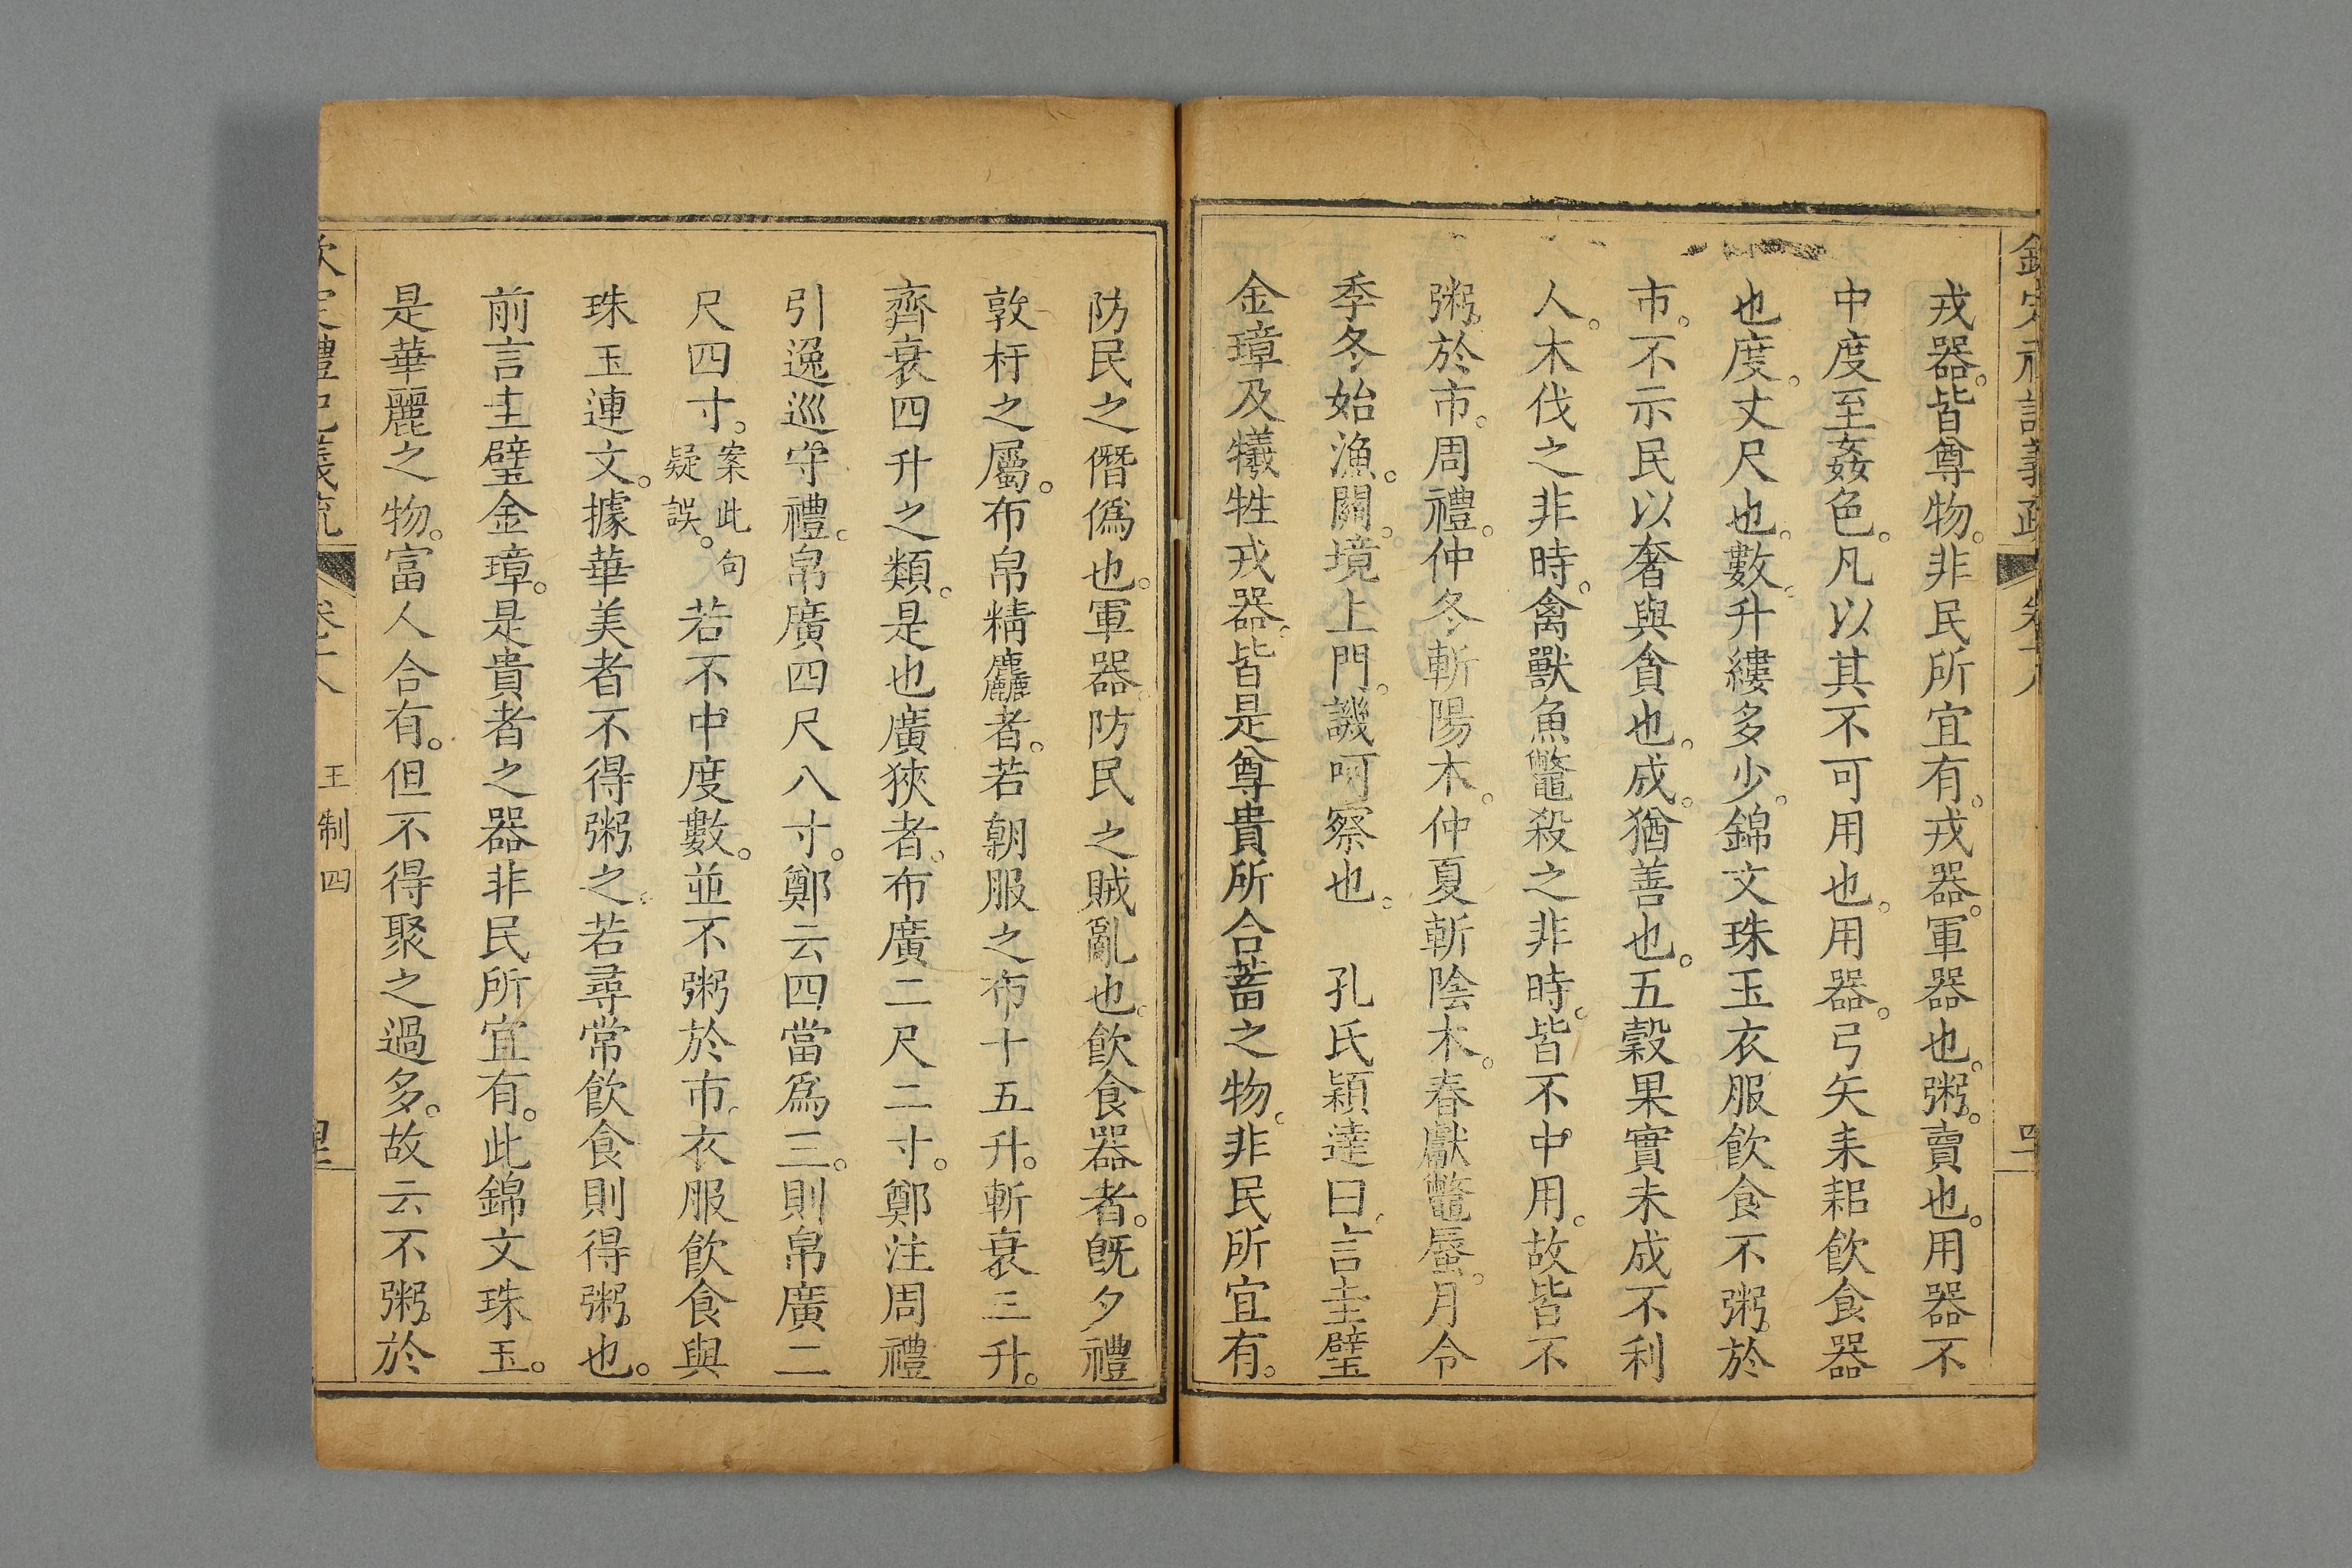 戎器。皆尊物。非民所宜有。戎器。軍器也。粥。賣也。用器不
中度至姦色。凡以其不可用也。用器。弓矢耒耜飮食器
也。度。丈尺也。數。升縷多少。錦文珠玉衣服飮食不粥。於
市。不示民以奢與貪也。成。猶善也。五穀果實未成不利
人。木伐之非時。禽獸魚鼈殺之非時。皆不中用。故皆不
粥。於市。周禮。仲冬斬陽木。仲夏斬陰木。春獻鼈蜃。月令
季冬始漁。關。境上門。譏呵察也。　孔氏穎達曰。言圭璧
金璋及犧牲戎器。皆是尊貴所合蓄之物。非民所宜有。
防民之僭僞也。軍器。防民之賊亂也。飮食器者。旣夕禮
敦杅之屬。布帛精麤者。若朝服之布十五升。斬衰三升。
齊衰四升之類。是也廣狹者。布廣二尺二寸。鄭注周禮
引逸巡守禮。帛廣四尺八寸。鄭云四當爲三。則帛廣二
尺四寸。案此句疑誤。若不中度數。並不粥於市。衣服飮食與
珠玉連文。據華美者不得粥之。若尋常飮食則得粥。也。
前言圭璧金璋。是貴者之器非民所宜有。此錦文珠玉。
是華麗之物。富人合有。但不得聚之過多。故云不粥。於
欽定禮記義疏　卷十八　王制四